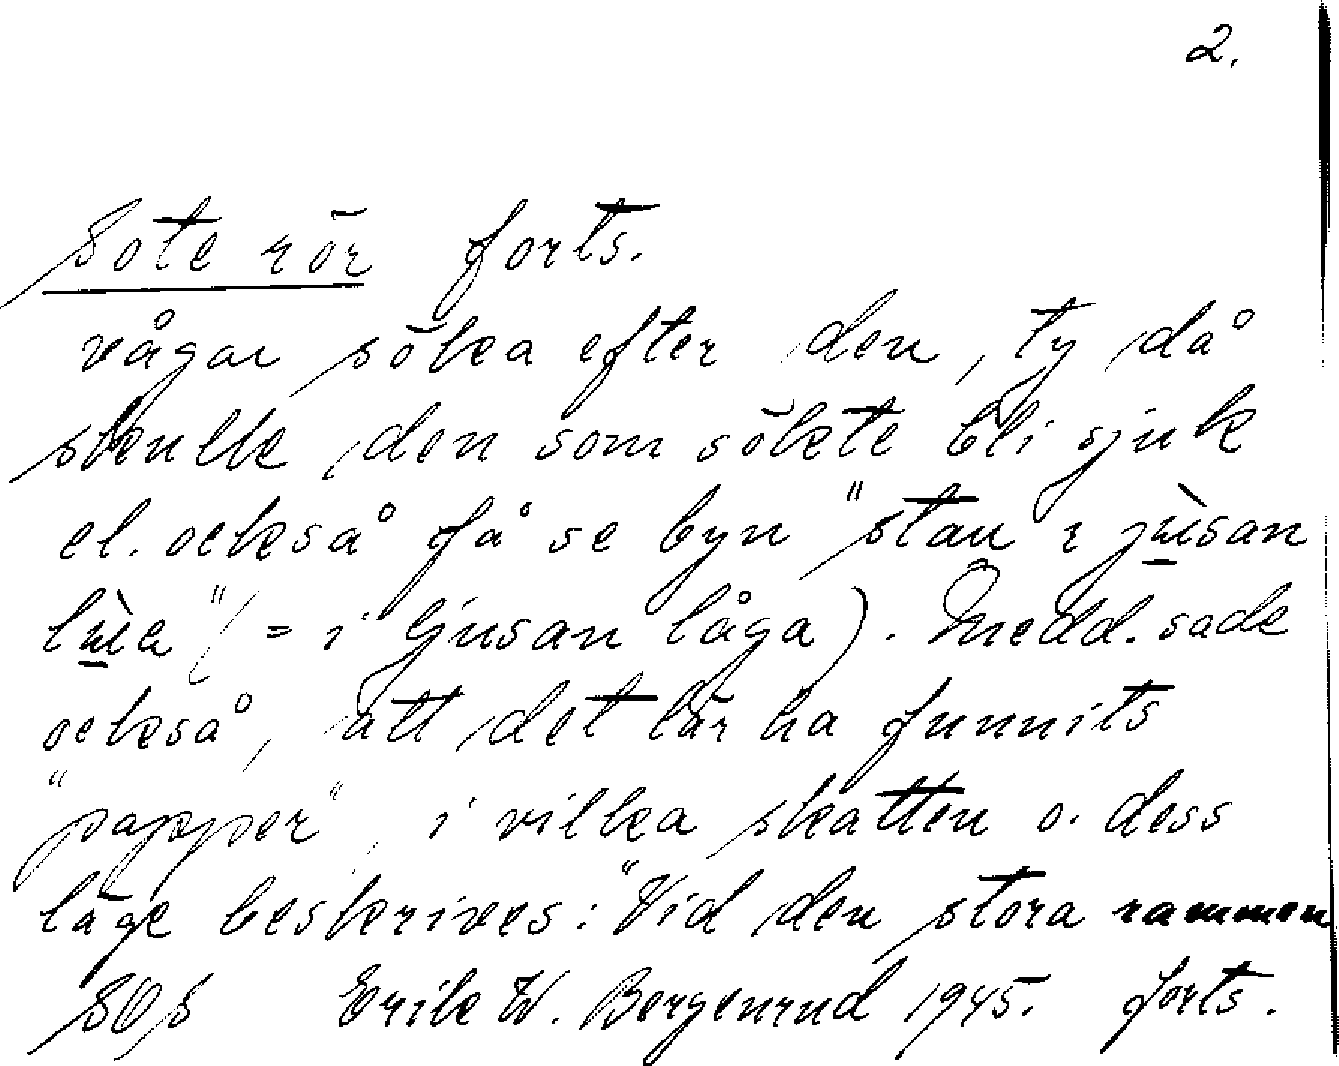 2.
Sote rör forts.
vågar söka efter den, ty då
skulle den som sökte bli sjuk
el. också få se byn "stan i jùsan
lùa" (= i ljusan låga). Medd. sade
också, att det lär ha funnits
"papper", i vilka skatten o. dess
läge beskrives: "Vid den stora rammen
SOS Erik W. Bergenrud 1945. forts.